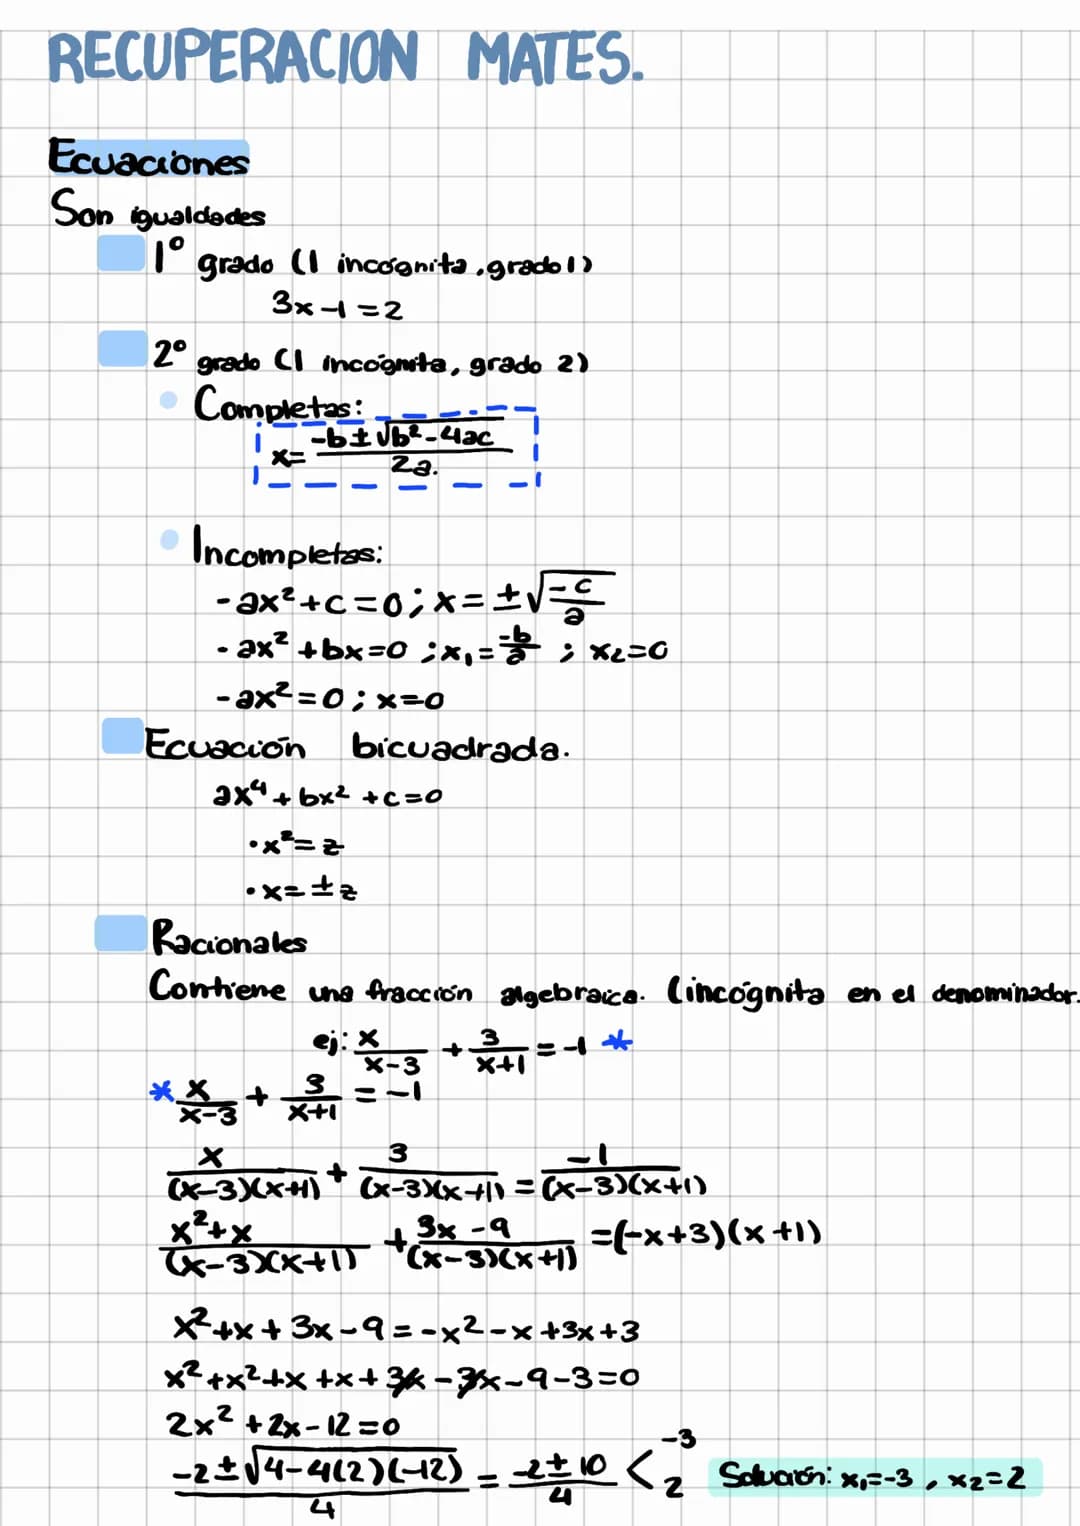 RECUPERACION MATES.
Ecuaciones
Son igualdades
1º grado (1 incógnita, grado 1)
3x-1=2
2º grado (1 incógnita, grado 2)
Completas:
x= -b±√b²-4ac / 2a.
Incompletas:
-ax²+c=0; x=±√-c/a
-ax²+bx=0; x₁=-b/a; x₂=0
-ax²=0; x=0
Ecuación bicuadrada.
ax⁴+bx²+c=0
·x²=z
·x=±z
Racionales
Contiene una fracción algebraica. (incógnita en el denominador.
ej: x/x-3 + 3/x+1 =-1 *
* x/x-3 + 3/x+1 = -1
x/(x-3)(x+1) + 3/(x-3)(x+1) = -1/(x-3)(x+1)
x²+x/(x-3)(x+1) + 3x-9/(x-3)(x+1) =(-x+3)(x+1)
x²+x+3x-9=-x²-x+3x+3
x²+x²+x+x+3x-3x-9-3=0
2x²+2x-12=0
-2±√4-4(2)(-12) / 4 = -2±10 / 4 < -3 2 Solución: x₁=-3, x₂=2